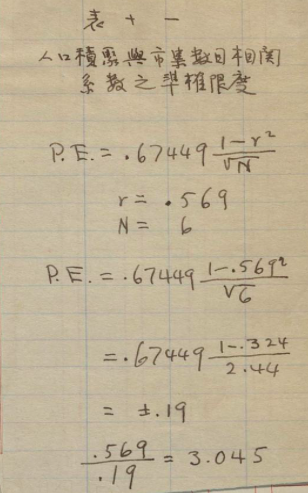 表十一
人口積聚與市集數目相關
系數之準確限度
P.E. = .67449 1-r²/√N
r = .569
N = 6
P.E. = .67449 1-.569²/√6
= .67449 1-.324/2.44
= ±.19
.569/.19 = 3.045